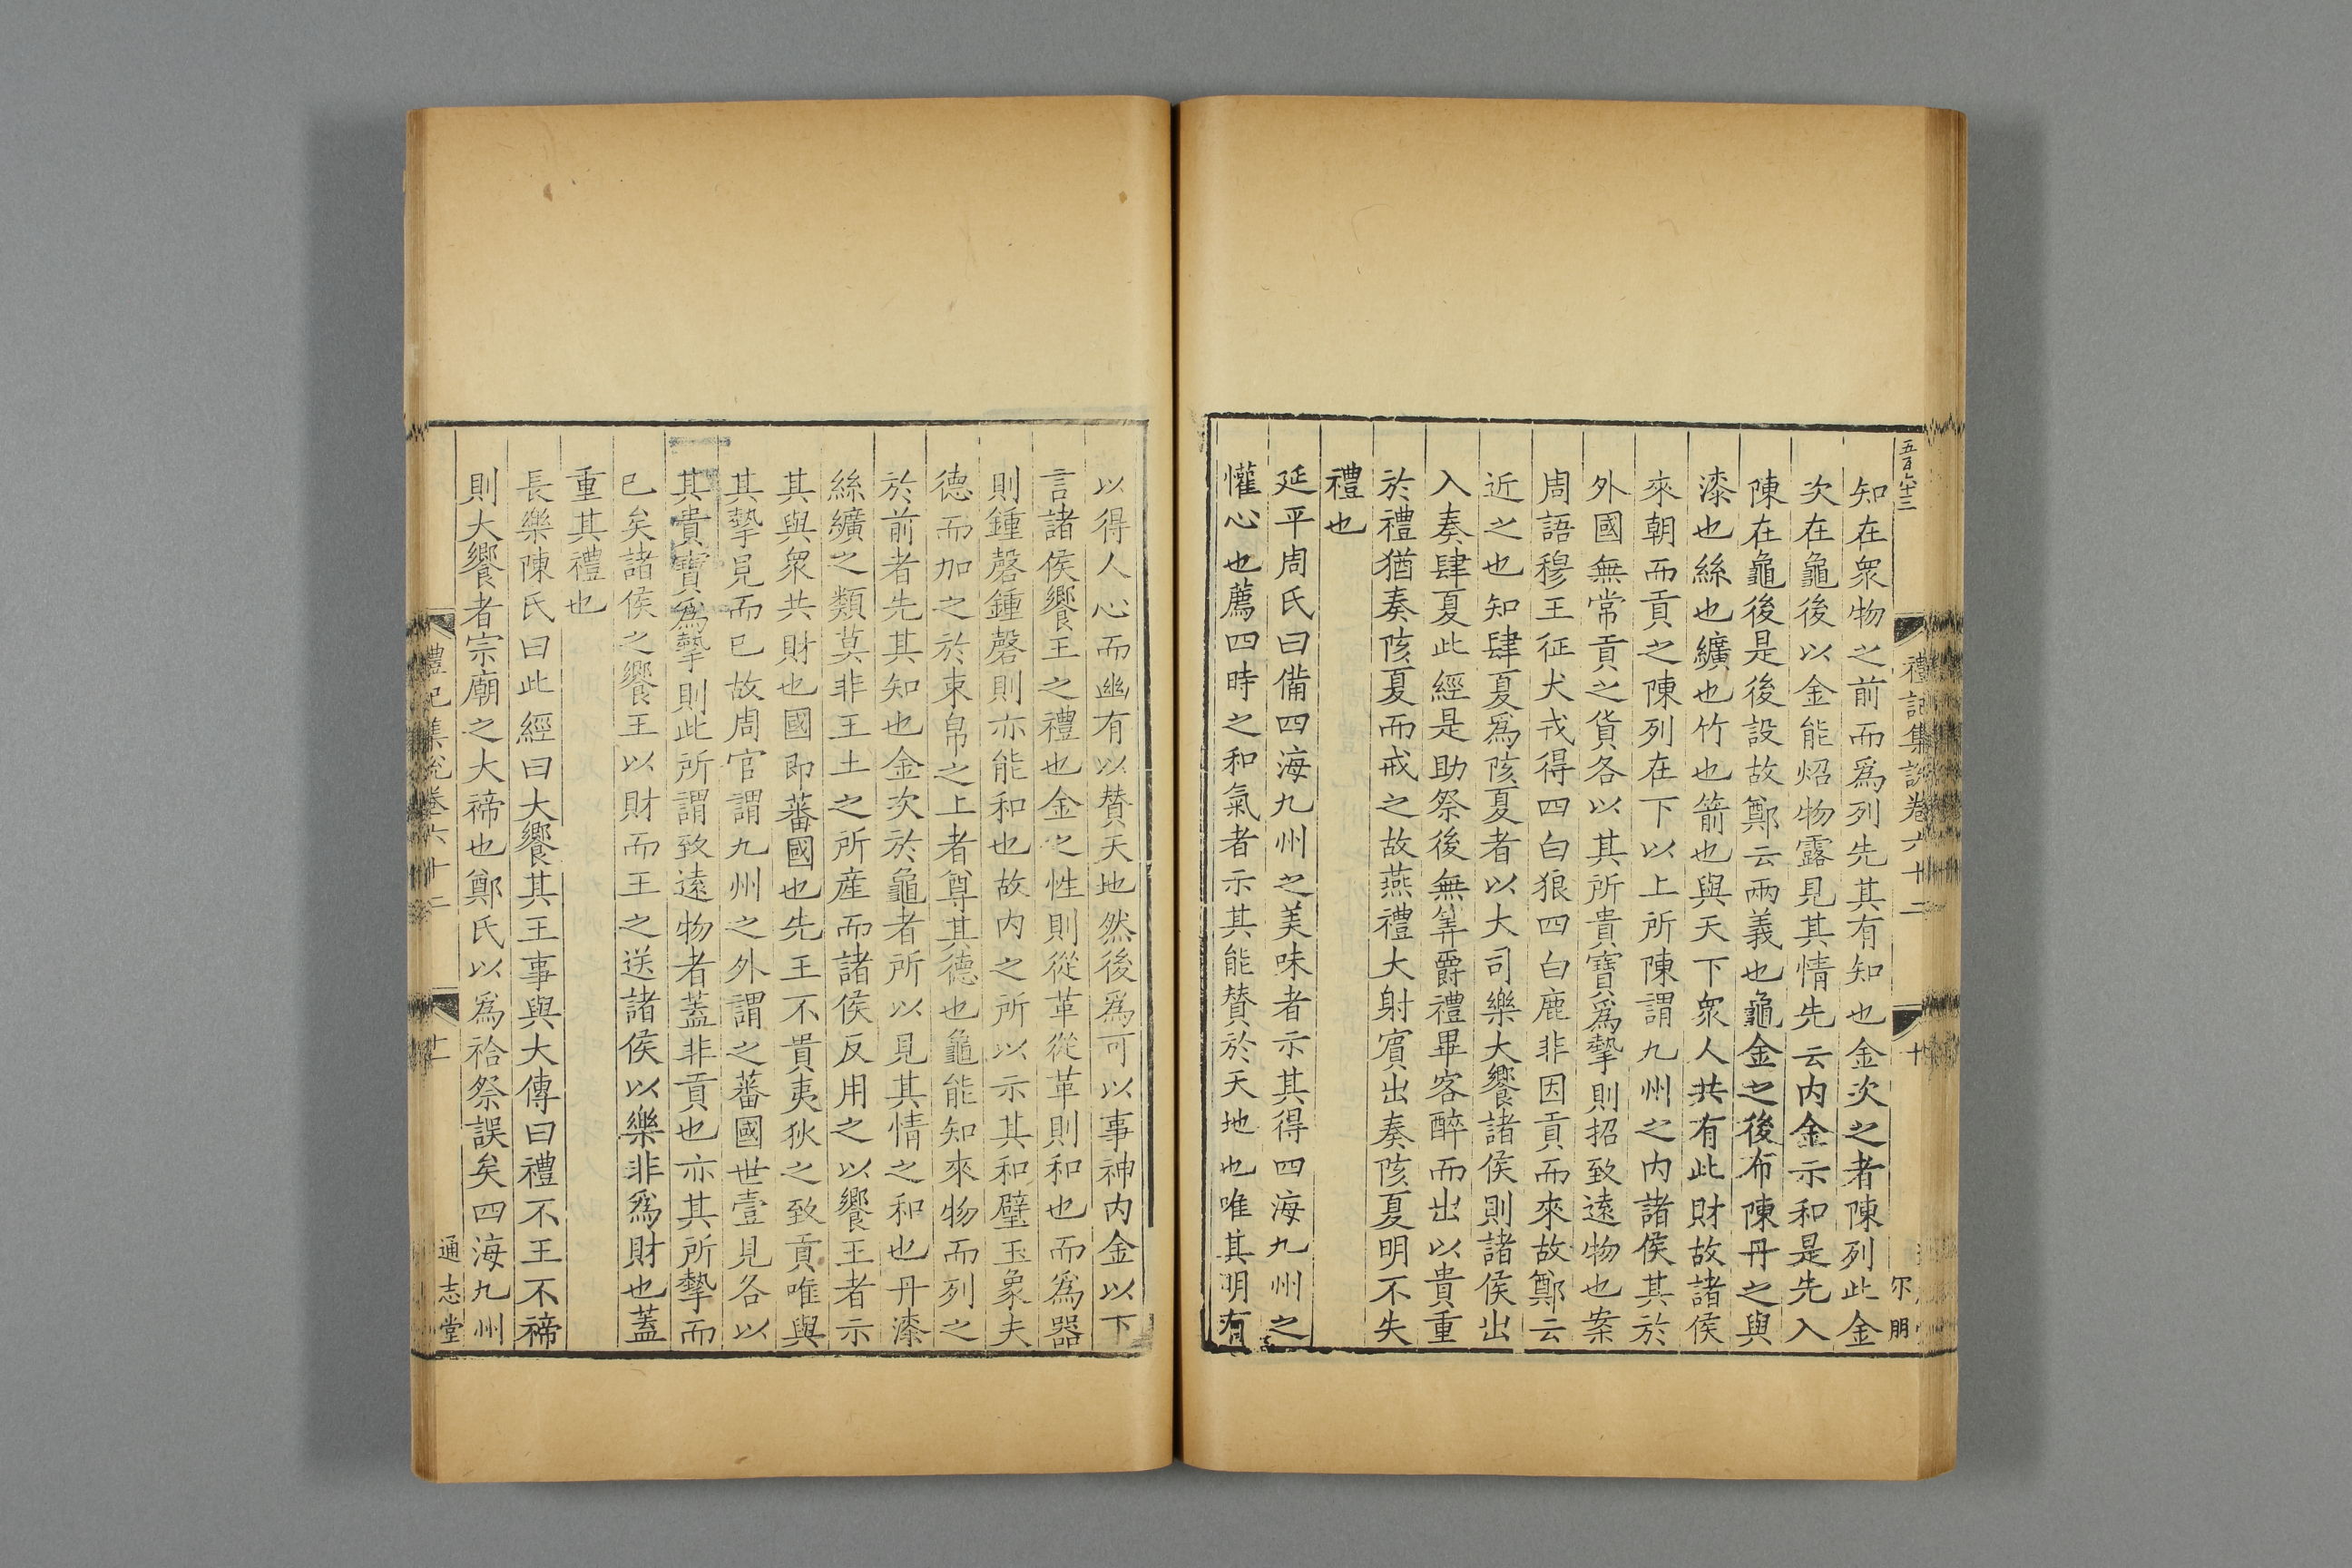 五百六十三
禮記集說卷六十二
十
尔朋
知在衆物之前而爲列先其有知也金次之者陳列此金
次在龜後以金能炤物露見其情先云内金示和是先入
陳在龜後是後設故鄭云兩義也龜金之後布陳丹之與
漆也絲也纊也竹也箭也與天下衆人共有此財故諸侯
來朝而貢之陳列在下以上所陳謂九州之内諸侯其於
外國無常貢之貨各以其所貴寶爲摯則招致遠物也案
周語穆王征犬戎得四白狼四白鹿非因貢而來故鄭云
近之也知肆夏爲陔夏者以大司樂大饗諸侯則諸侯出
入奏肆夏此經是助祭後無筭爵禮畢客醉而出以貴重
於禮猶奏陔夏而戒之故燕禮大射賔出奏陔夏明不失
禮也
延平周氏曰備四海九州之美味者示其得四海九州之
懽心也薦四時之和氣者示其能賛於天地也唯其明有
以得人心而幽有以賛天地然後爲可以事神内金以下
言諸侯饗王之禮也金之性則從革從革則和也而爲器
則鍾磬鍾磬則亦能和也故内之所以示其和璧玉象夫
德而加之於束帛之上者尊其德也龜能知來物而列之
於前者先其知也金次於龜者所以見其情之和也丹漆
絲纊之類莫非王土之所産而諸侯反用之以饗王者示
其與衆共財也國即蕃國也先王不貴夷狄之致貢唯與
其摯見而已故周官謂九州之外謂之蕃國世壹見各以
其貴寶爲摯則此所謂致遠物者蓋非貢也亦其所摯而
已矣諸侯之饗王以財而王之送諸侯以樂非爲財也蓋
重其禮也
長樂陳氏曰此經曰大饗其王事與大傳曰禮不王不禘
則大饗者宗廟之大禘也鄭氏以爲祫祭誤矣四海九州
禮記集說卷六十二
十一
通志堂